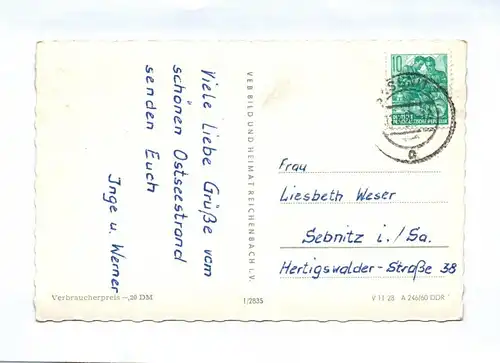 Viele Liebe Grüße vom
schönen Ostseestrand
senden Euch
Inge u. Werner
VEB BILD UND HEIMAT REICHENBACH I. V.
10
Frau
Liesbeth Weser
Sebnitz i./Sa.
Hertigswalder-Straße 38
Verbraucherpreis -,20 DM
1/2835
V 11 28 A 246/60 DDR